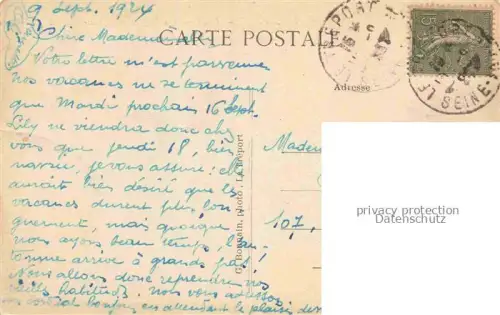 9 Sept. 1924
CARTE POSTALE
Chère Mademoiselle
Votre lettre m'est parvenue
nos vacances ne se terminent
que Mardi prochain 16 Sept.
Lily ne viendra donc chez
vous que jeudi 18, bien
navrée, je vous assure: elle
aurait bien désiré que les
vacances durent plus lon-
guement, mais quoique
nous ayons beau temps, l'au-
tomne arrive à grands pas!
Nous allons donc reprendre nos
vieilles habitudes. Nous vous adressons
bonjour en attendant le plaisir de
Adresse
Madem
107,
G. Bougain, photo. Le Tréport
LE TREPORT
SEINE
privacy protection
Datenschutz